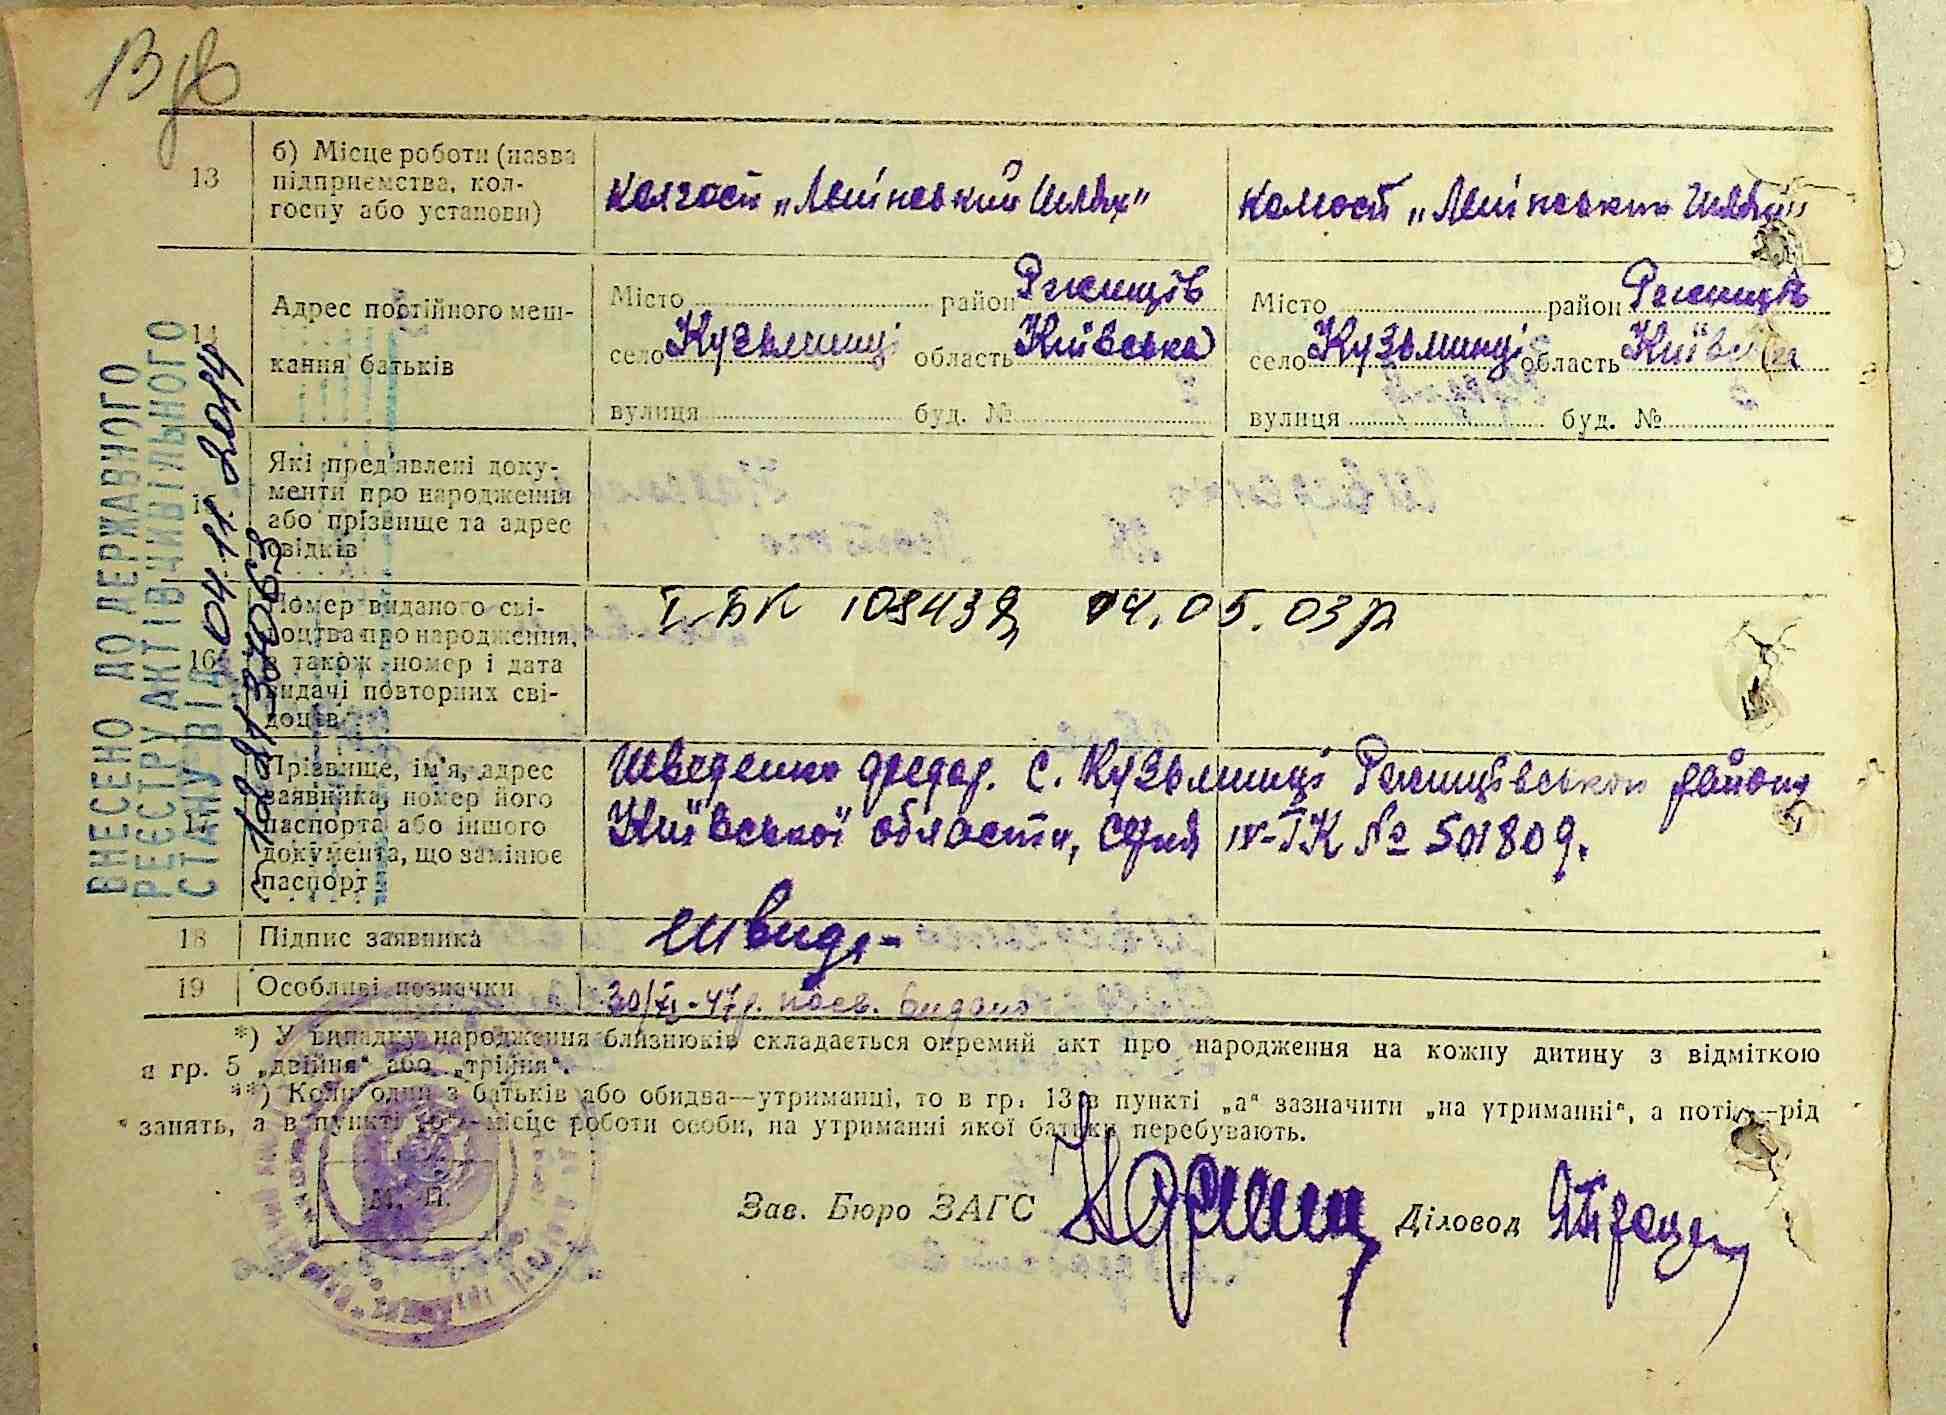 13
б) Місце роботи (назва
підприємства, кол-
госпу або установи)
колгосп „Ленінський Шлях"
колгосп „Ленінський Шлях"
14
Адрес постійного меш-
кання батьків
Місто район Ржищів
село Кузьминці область Київська
вулиця буд. №
Місто район Ржищів
село Кузьминці область Київська
вулиця буд. №
Які пред'явлені доку-
менти про народження
або прізвище та адрес
свідків
16
Номер виданого сві-
доцтва про народження,
а також номер і дата
видачі повторних сві-
доцтв
І-БК 108439 04.05.03р
17
Прізвище, ім'я, адрес
заявника, номер його
паспорта або іншого
документа, що замінює
паспорт
с. Кузьминці Ржищівського району
Київської області, серія IV-ТК № 501809.
18
Підпис заявника
19
Особливі позначки
30/XI-47р. посв. видано
*) У випадку народження близнюків складається окремий акт про народження на кожну дитину з відміткою
в гр. 5 „двійня“ або „трійня“.
**) Коли один з батьків або обидва—утриманці, то в гр. 13 в пункті „а“ зазначити „на утриманні“, а потім—рід
занять, а в пункті „б“—місце роботи особи, на утриманні якої батьки перебувають.
М. П.
Зав. Бюро ЗАГС
Діловод
ВНЕСЕНО ДО ДЕРЖАВНОГО
РЕЄСТРУ АКТІВ ЦИВІЛЬНОГО
СТАНУ ВІД 04.11.2014